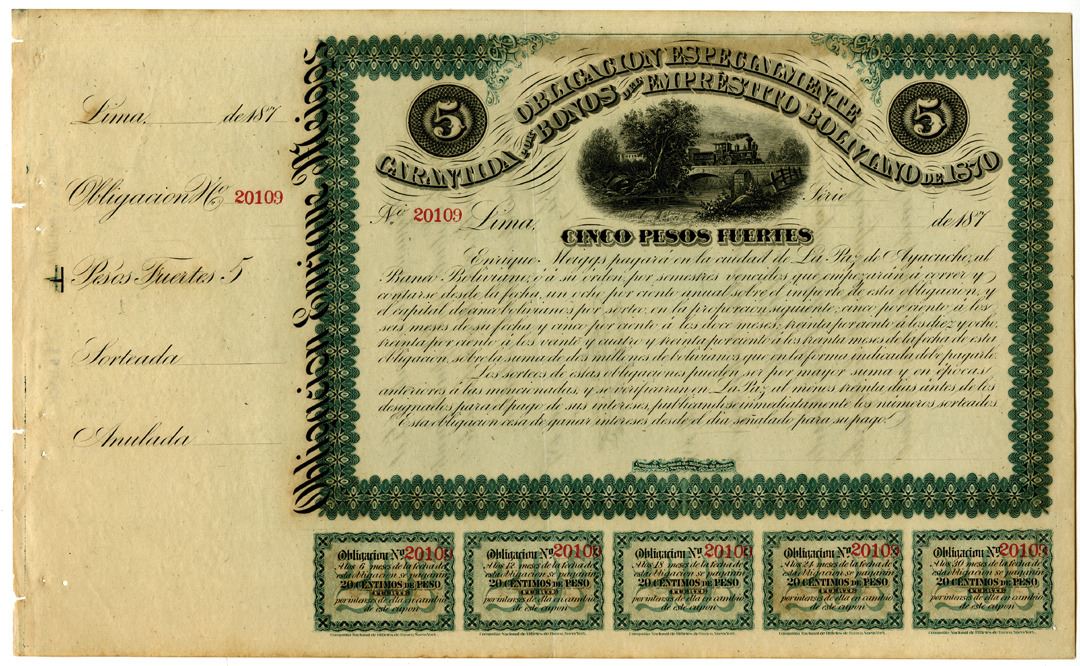 Lima, de 187
Obligacion No. 20109
Pesos Fuertes 5
Sorteada
Anulada
Obligacion Enrique Meiggs
5
5
OBLIGACION ESPECIALMENTE
GARANTIDA POR BONOS DEL EMPRÉSTITO BOLIVIANO DE 1870
Série
No. 20109 Lima, de 187
CINCO PESOS FUERTES
Enrique Meiggs pagará en la ciudad de La Paz de Ayacucho, al
Banco Boliviano, ó á su órden por semestres vencidos que empezarán á correr y
contarse desde la fecha, un ocho por ciento anual sobre el importe de esta obligacion, y
el capital de cinco bolivianos por sorteo, en la proporcion siguiente; cinco por ciento á los
seis meses de su fecha y cinco por ciento á los doce meses; treinta por ciento á los diez y ocho,
treinta por ciento á los veinte y cuatro y treinta por ciento á los treinta meses de la fecha de esta
obligacion, sobre la suma de dos millones de bolivianos que en la forma indicada debe pagarle.
Los sorteos de estas obligaciones pueden ser por mayor suma y en épocas
anteriores á las mencionadas, y se verificarán en La Paz al menos treinta dias antes de los
designados para el pago de sus intereses, publicandose inmediatamente los números sorteados.
Esta obligacion cesa de ganar intereses desde el dia señalado para su pago.
Compañia Nacional de Billetes de Banco,
Nueva York.
Obligacion No. 20109
A los 6 meses de la fecha de
esta obligacion se pagarán
20 CÉNTIMOS DE PESO
FUERTE
por interses de ella en cambio
de este cupon
Compañia Nacional de Billetes de Banco, Nueva York.
Obligacion No. 20109
A los 12 meses de la fecha de
esta obligacion se pagarán
20 CÉNTIMOS DE PESO
FUERTE
por interses de ella en cambio
de este cupon
Compañia Nacional de Billetes de Banco, Nueva York.
Obligacion No. 20109
A los 18 meses de la fecha de
esta obligacion se pagarán
20 CÉNTIMOS DE PESO
FUERTE
por interses de ella en cambio
de este cupon
Compañia Nacional de Billetes de Banco, Nueva York.
Obligacion No. 20109
A los 24 meses de la fecha de
esta obligacion se pagarán
20 CÉNTIMOS DE PESO
FUERTE
por interses de ella en cambio
de este cupon
Compañia Nacional de Billetes de Banco, Nueva York.
Obligacion No. 20109
A los 30 meses de la fecha de
esta obligacion se pagarán
20 CÉNTIMOS DE PESO
FUERTE
por interses de ella en cambio
de este cupon
Compañia Nacional de Billetes de Banco, Nueva York.